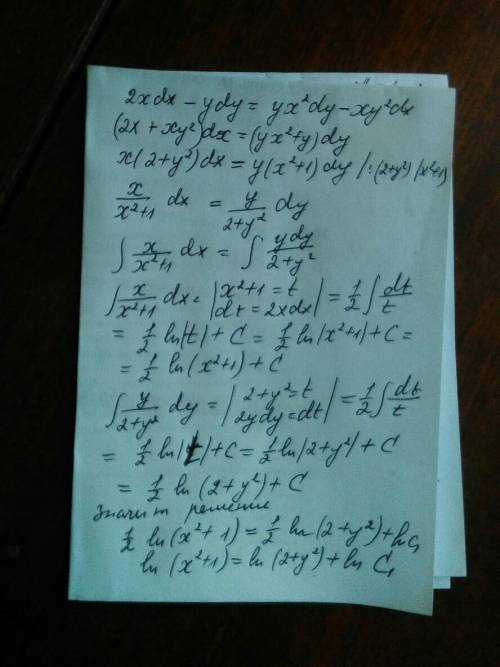 2xdx - ydy = yx²dy - xy²dx
(2x + xy²)dx = (yx² + y)dy
x(2+y²)dx = y(x²+1)dy /:(2+y²)(x²+1)
x/(x²+1) dx = y/(2+y²) dy
∫ x/(x²+1) dx = ∫ ydy/(2+y²)
∫ x/(x²+1) dx = |x²+1=t dt=2xdx| = 1/2 ∫ dt/t
= 1/2 ln|t| + C = 1/2 ln|x²+1| + C =
= 1/2 ln(x²+1) + C
∫ y/(2+y²) dy = |2+y²=t 2ydy=dt| = 1/2 ∫ dt/t
= 1/2 ln|t| + C = 1/2 ln|2+y²| + C
= 1/2 ln(2+y²) + C
Значит решение
1/2 ln(x²+1) = 1/2 ln(2+y²) + ln C₁
ln(x²+1) = ln(2+y²) + ln C₁